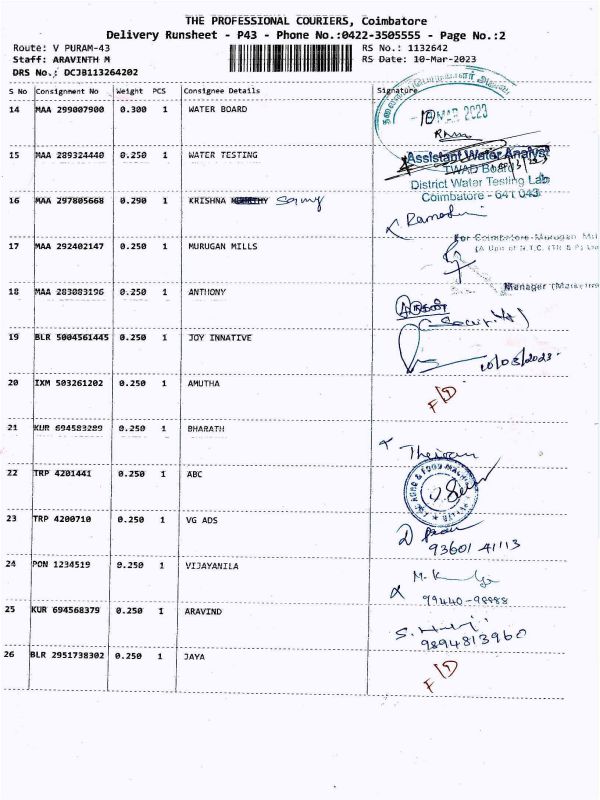 THE PROFESSIONAL COURIERS, Coimbatore
Delivery Runsheet - P43 - Phone No.:0422-3505555 - Page No.:2
Route: V PURAM-43 RS No.: 1132642
Staff: ARAVINTH M RS Date: 10-Mar-2023
DRS No.: DCJB113264202
S No Consignment No Weight PCS Consignee Details Signature
14 MAA 299007900 0.300 1 WATER BOARD
10 MAR 2023
15 MAA 289324440 0.250 1 WATER TESTING
Assistant Water Analyst
TWAD Board
District Water Testing Lab
Coimbatore - 641 043
16 MAA 297805668 0.290 1 KRISHNA
17 MAA 292402147 0.250 1 MURUGAN MILLS
For Coimbatore Murugan
Manager
18 MAA 283083196 0.250 1 ANTHONY
19 BLR 5004561445 0.250 1 JOY INNATIVE
10/03/2023
20 IXM 503261202 0.250 1 AMUTHA
F/D
21 KUR 694583289 0.250 1 BHARATH
22 TRP 4201441 0.250 1 ABC
23 TRP 4200710 0.250 1 VG ADS
93601 41113
24 PON 1234519 0.250 1 VIJAYANILA
99440-98888
25 KUR 694568379 0.250 1 ARAVIND
9894813960
26 BLR 2951738302 0.250 1 JAYA
F/D